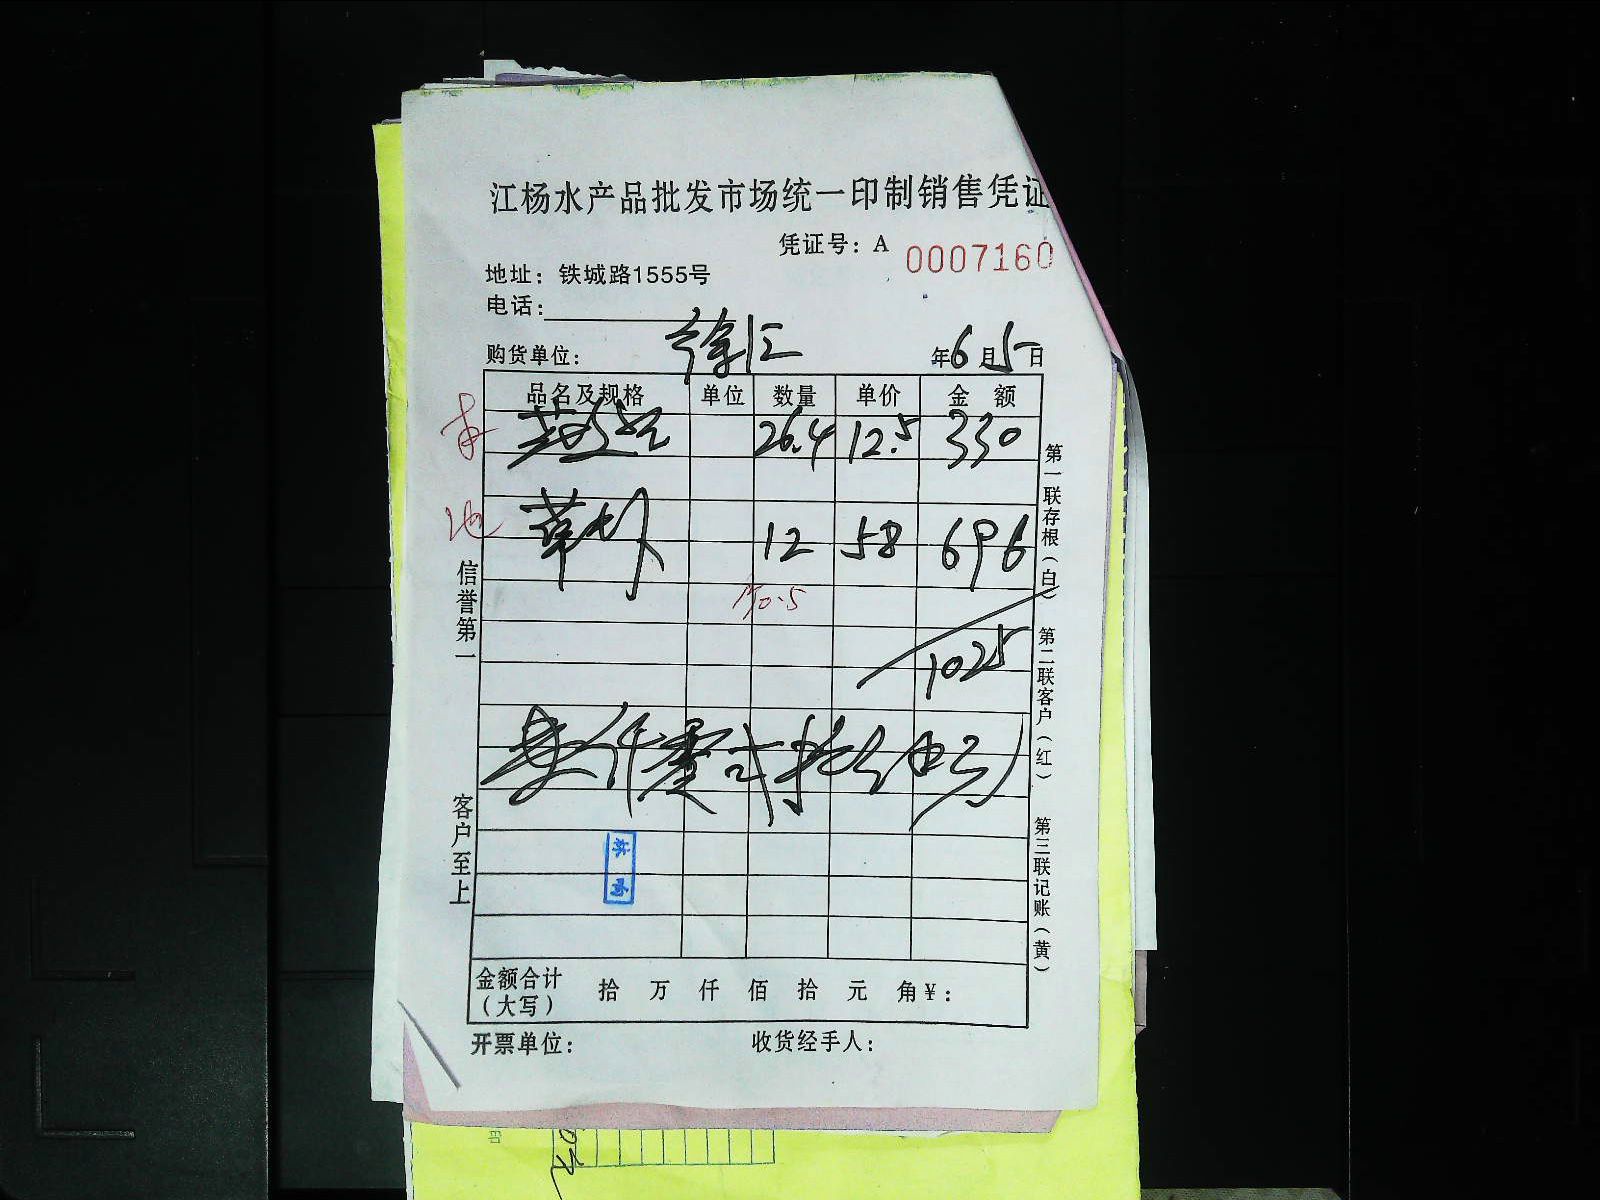 江杨水产品批发市场统一印制销售凭证
凭证号：A 0007160
地址：铁城路1555号
电话：
购货单位： 徐汇 年6月5日
品名及规格 单位 数量 单价 金 额
26.4 12.5 330
草虾 12 58 696
170.5
1025
信誉第一
客户至上
第一联存根（白） 第二联客户（红） 第三联记账（黄）
金额合计（大写） 拾 万 仟 佰 拾 元 角¥：
开票单位： 收货经手人：